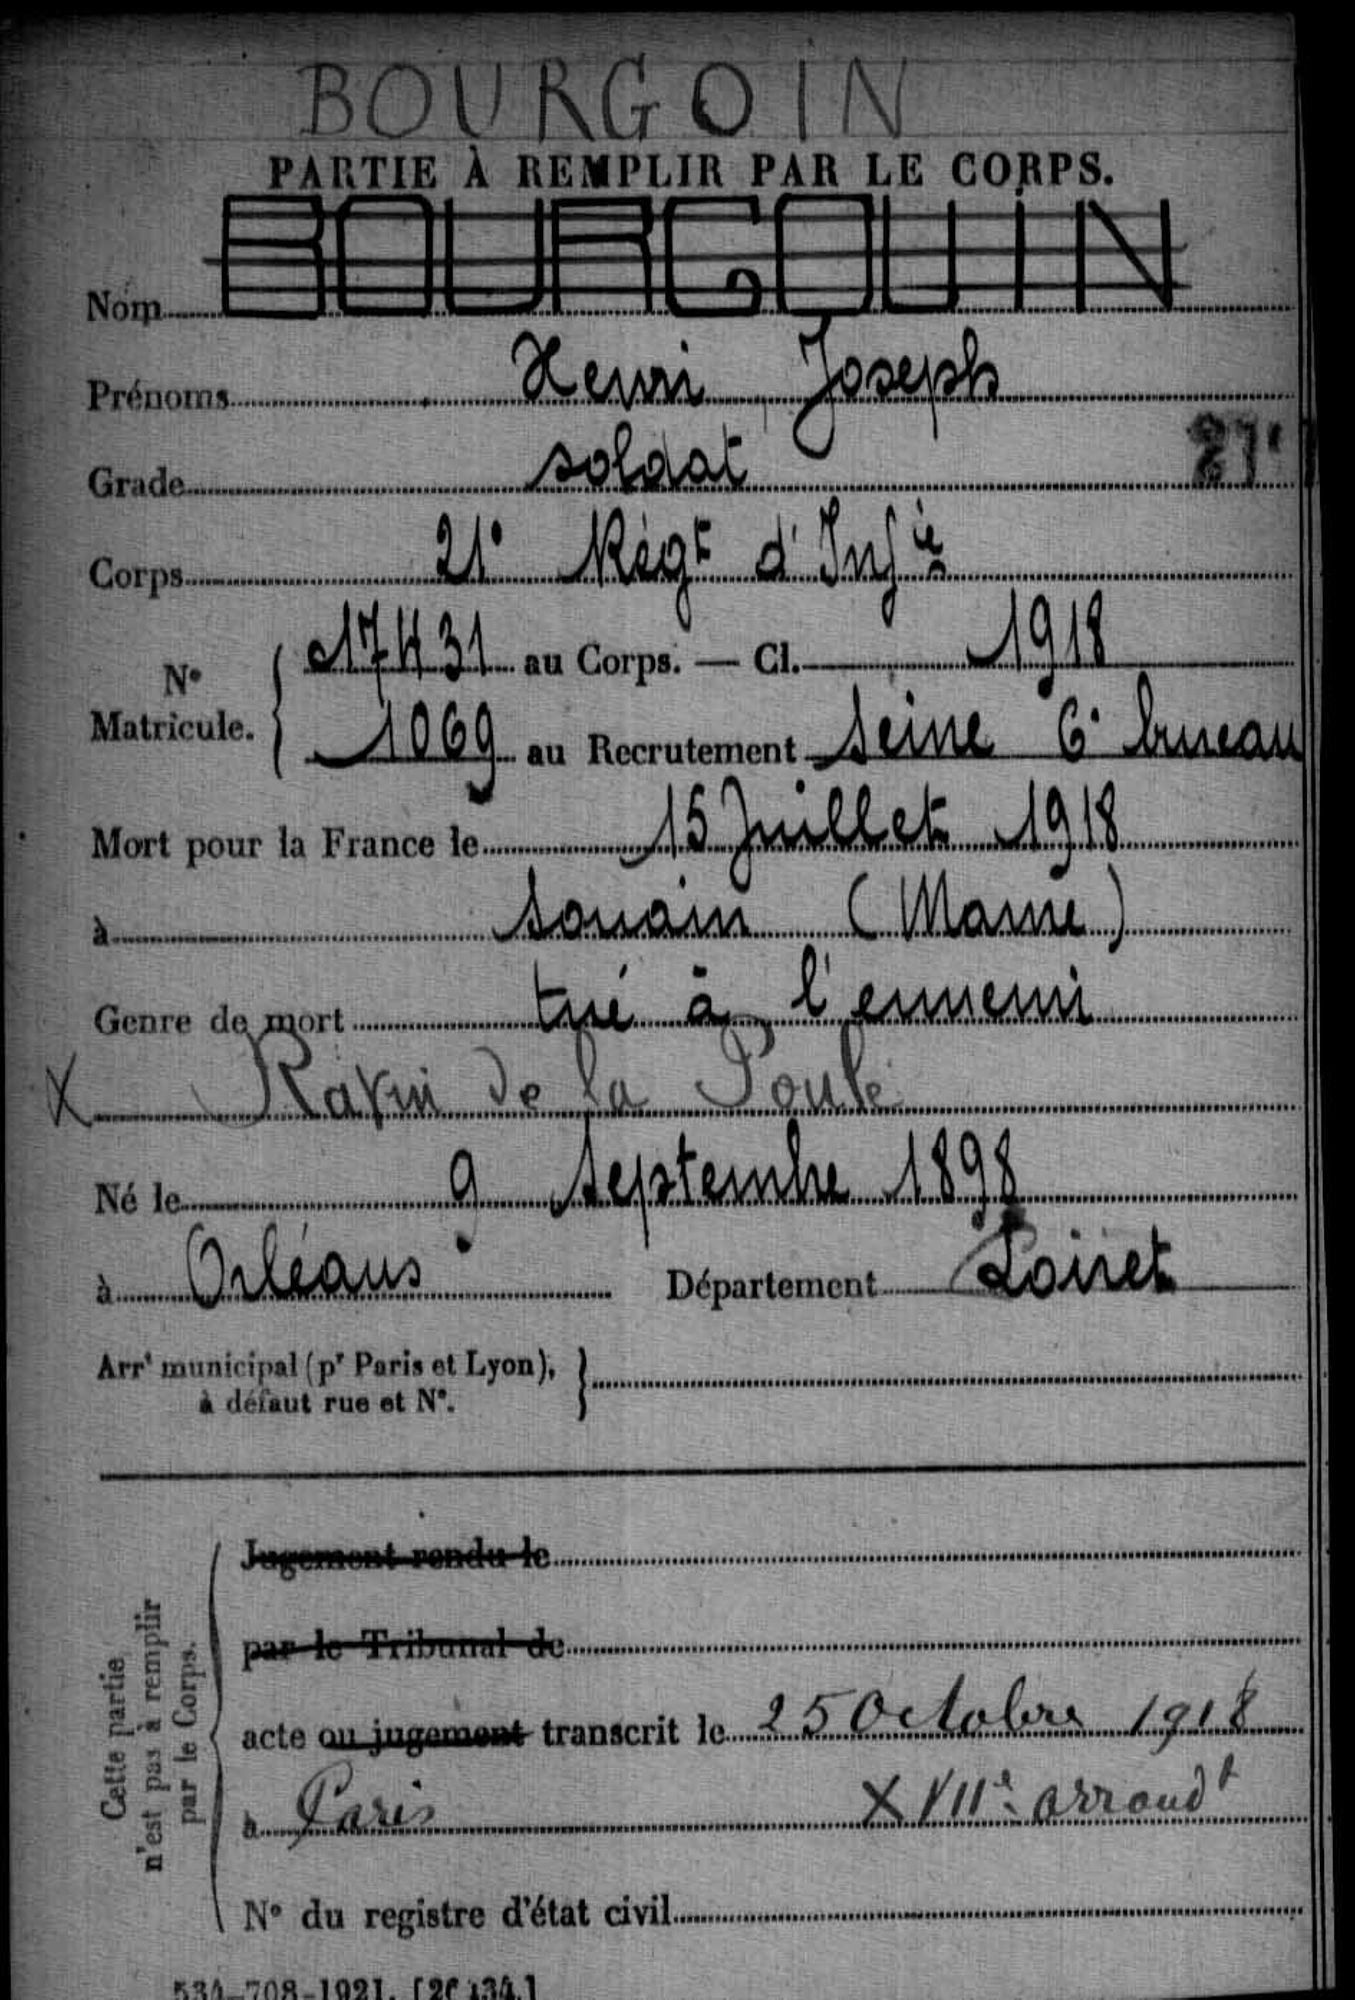 BOURGOIN
PARTIE À REMPLIR PAR LE CORPS.
Nom BOURGOUIN
Prénoms Henri Joseph
Grade soldat 21e
Corps 21e Régt d'Infie
No Matricule. { 17431 au Corps. — Cl. 1918
1069 au Recrutement Seine 6e bureau
Mort pour la France le 15 Juillet 1918
à Souain (Marne)
Genre de mort tué à l'ennemi
X Ravin de la Poule
Né le 9 Septembre 1898
à Orléans Département Loiret
Arrt municipal (pr Paris et Lyon), }
à défaut rue et No.
Cette partie
n'est pas à remplir
par le Corps.
Jugement rendu le
par le Tribunal de
acte ou jugement transcrit le 25 Octobre 1918
à Paris XVIIe arrondt
No du registre d'état civil
534-708-1921. [26434.]